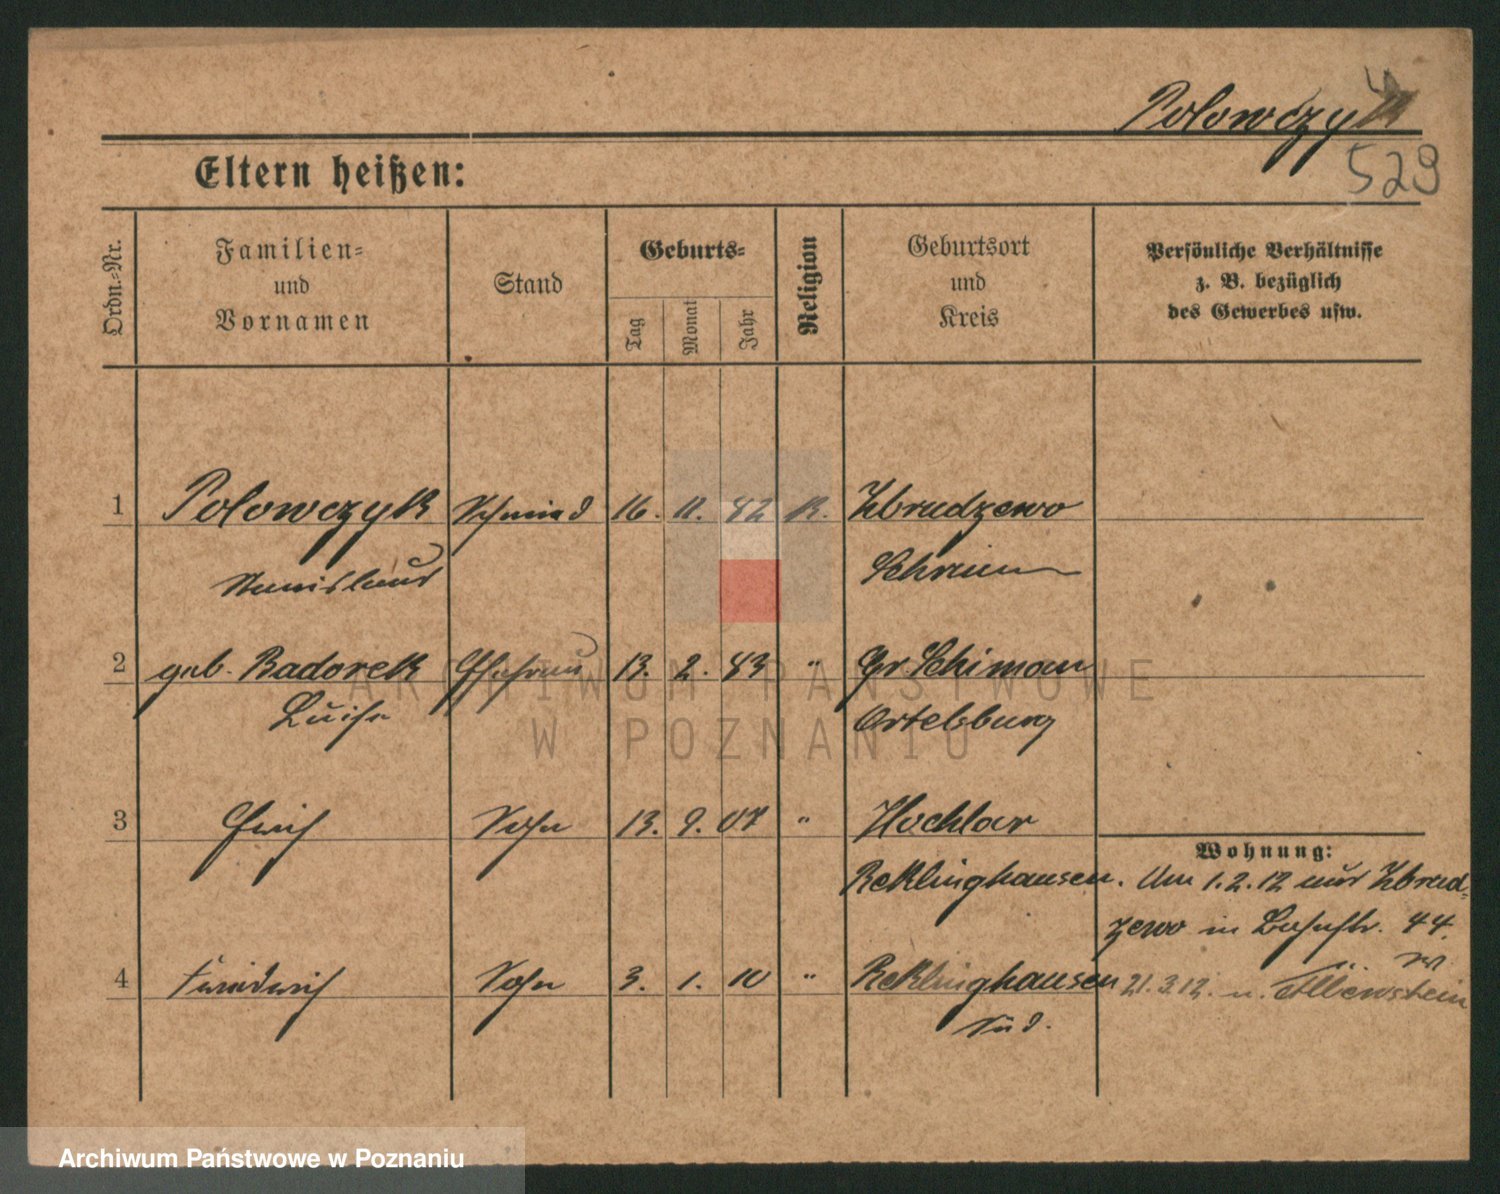 Polowczyk
529
Eltern heißen:
Ordn.=Nr.
Familien=
und
Vornamen
Stand
Geburts=
Tag
Monat
Jahr
Religion
Geburtsort
und
Kreis
Persönliche Verhältnisse
z. B. bezüglich
des Gewerbes usw.
1 Polowczyk Schmied 16. 11. 82 K. Zbrudzewo
Stanislaus Schrimm
2 geb. Badorek Ehefrau 13. 2. 83 " Gr. Schiman
Luise Ortelsburg
3 Erich Sohn 13. 9. 07 " Hochlar
Wohnung:
Reklinghausen. Am 1.2.12 aus Zbrud=
zewo in Bahnstr. 44.
4 Friedrich Sohn 3. 1. 10 " Reklinghausen 21.3.12. n. Allenstein
Süd.
ARCHIWUM PAŃSTWOWE
W POZNANIU
Archiwum Państwowe w Poznaniu